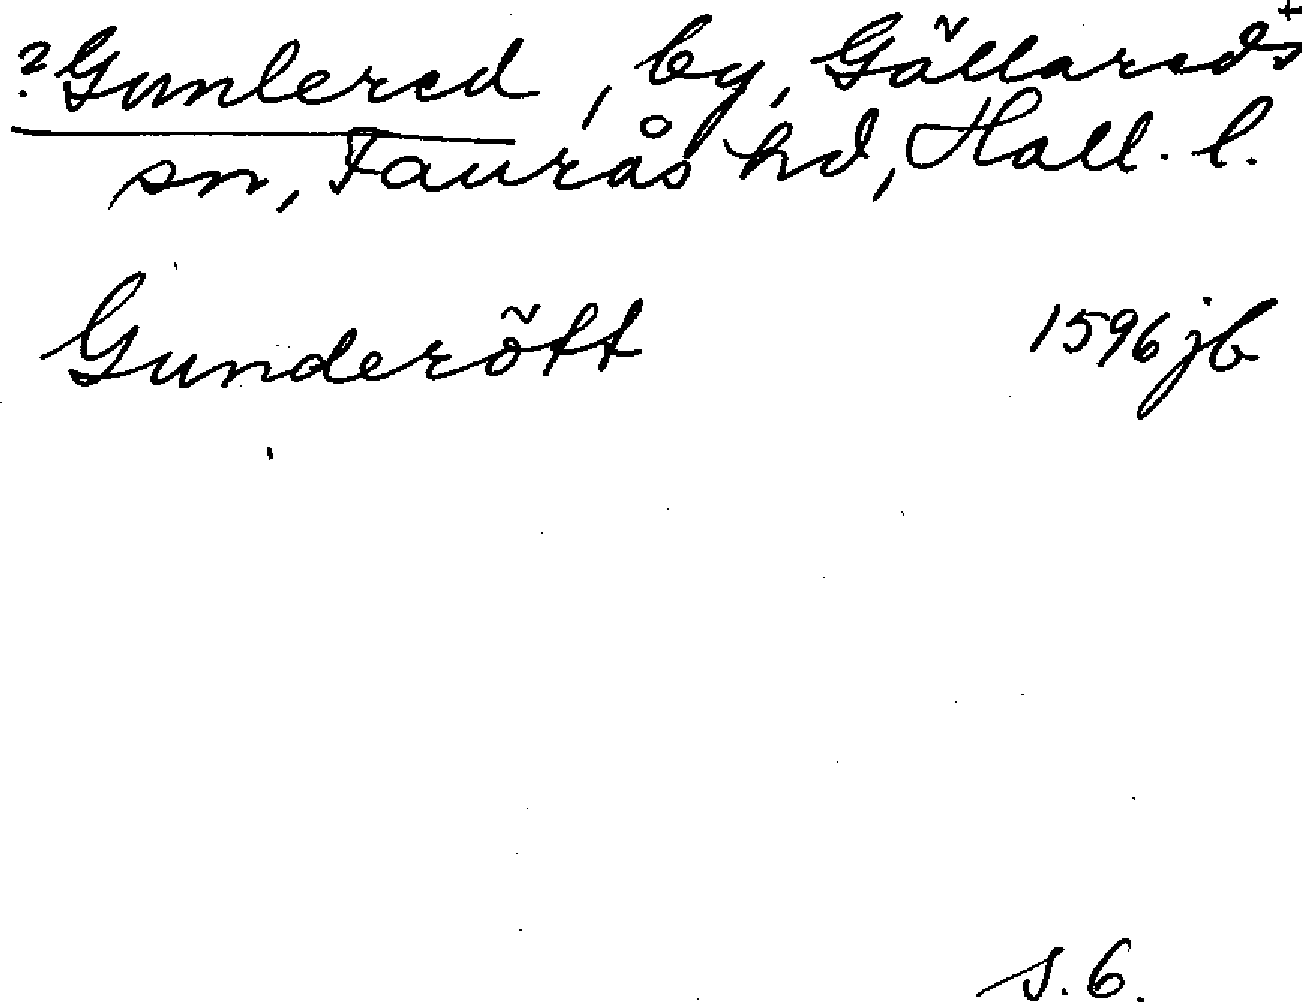 ? Gunlered, by, Gällareds +
sn, Faurås hd, Hall. l.
Gunderött 1596 jb
s. 6.